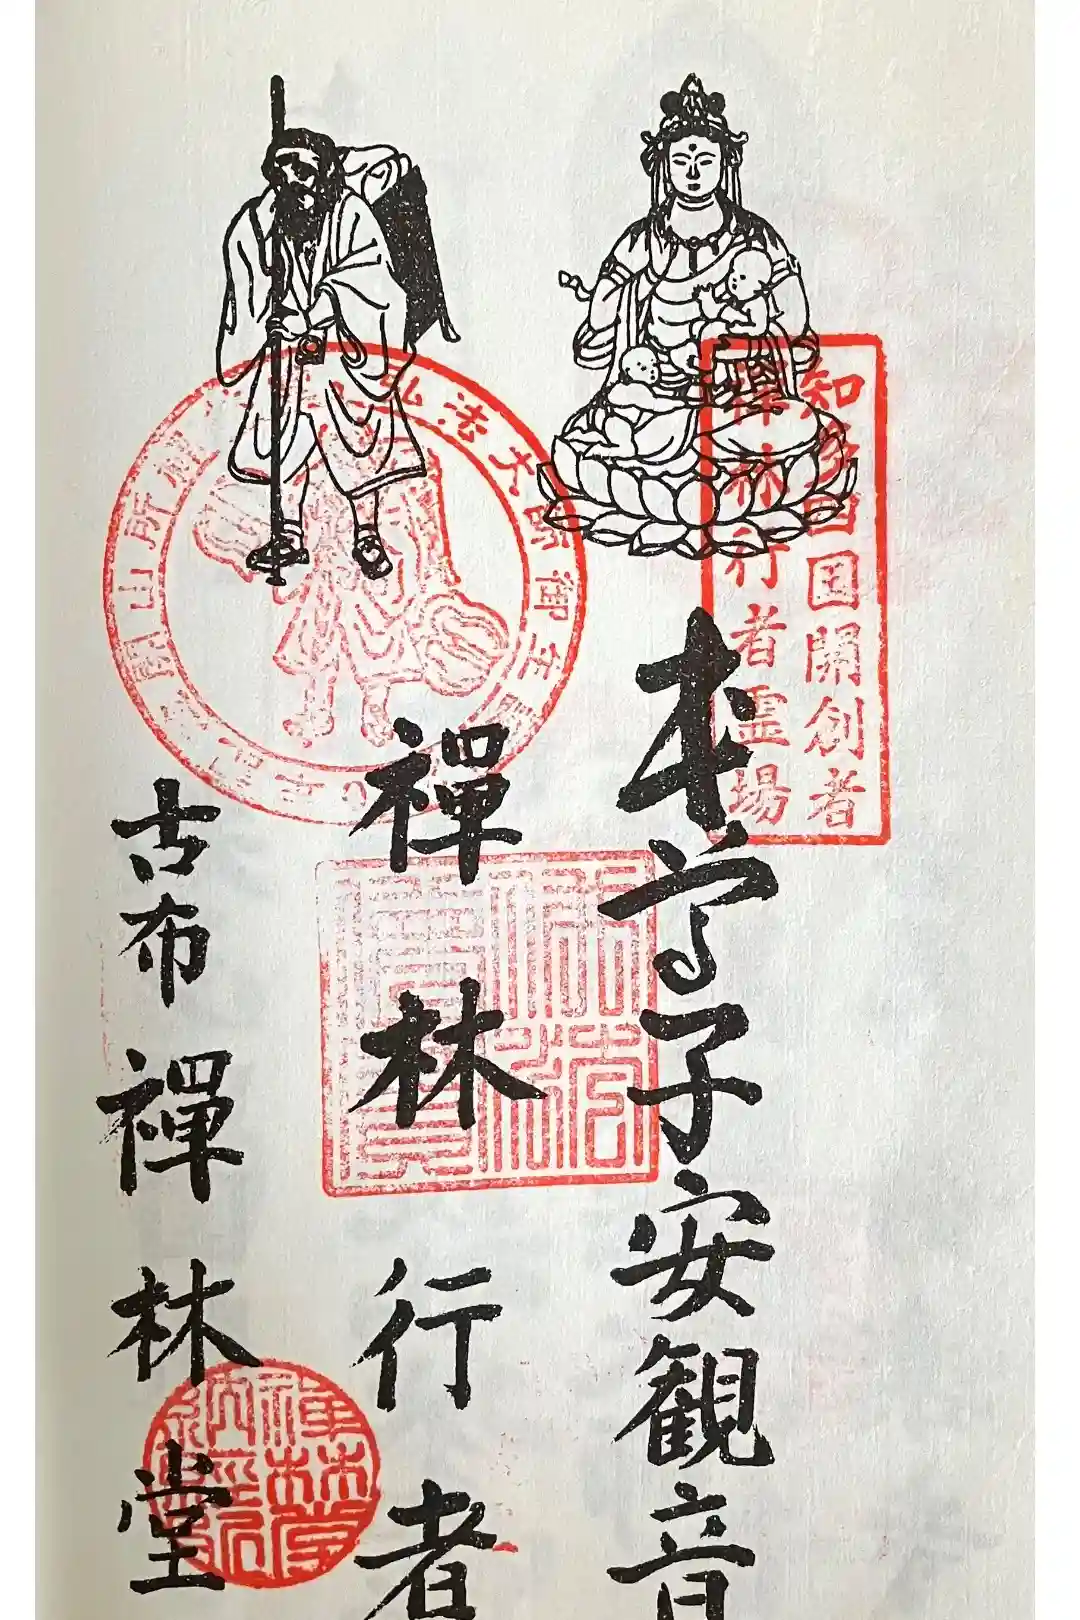 知多四国開創者
禅林行者霊場
本尊子安観音
禅林行者
古布禅林堂
弘法大師御